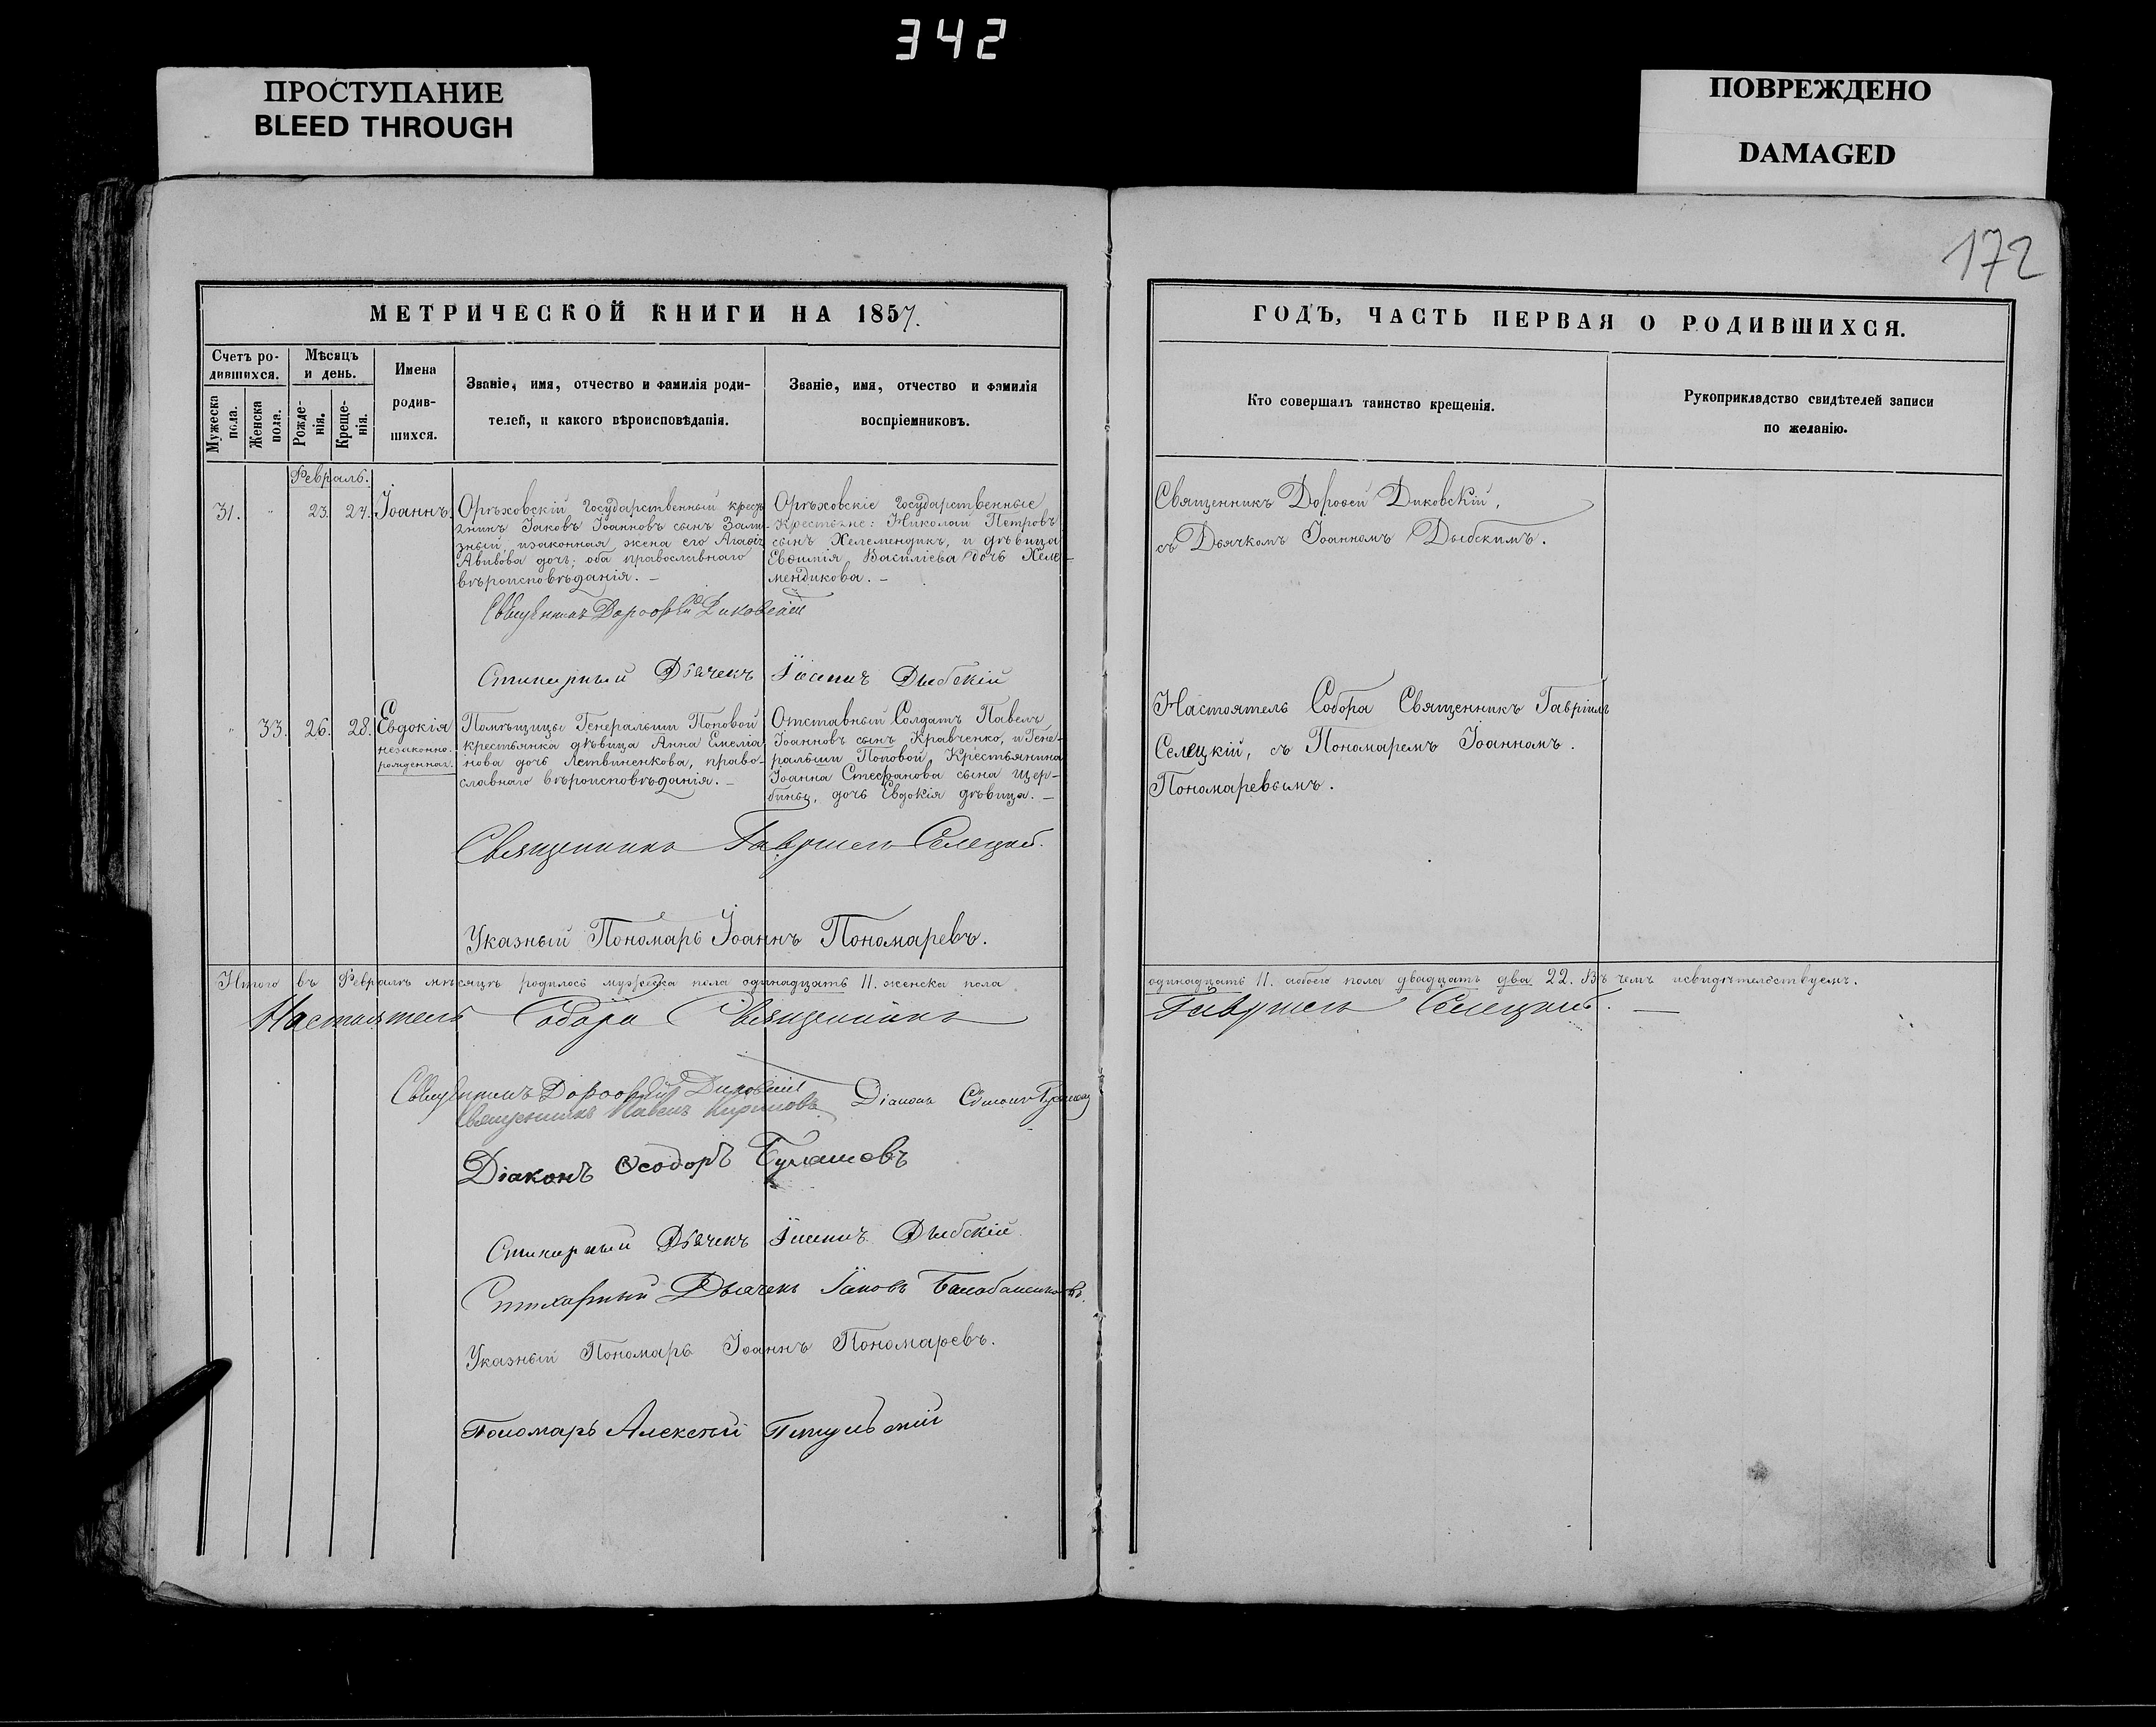 342
ПРОСТУПАНИЕ
BLEED THROUGH
ПОВРЕЖДЕНО
DAMAGED
172
МЕТРИЧЕСКОЙ КНИГИ НА 1857.
Счетъ ро-
дившихся.
Мужеска пола.
Женска пола.
Мѣсяцъ
и день.
Рожде-
нія.
Креще-
нія.
Имена
родив-
шихся.
Званіе, имя, отчество и фамилія роди-
телей, и какого вѣроисповѣданія.
Званіе, имя, отчество и фамилія
воспріемниковъ.
Февраль.
31. " 23. 27. Іоаннъ.
Орѣховскій Государственный кресть
янинъ Іаковъ Іоанновъ сынъ Зали-
зный, изаконная жена его Агаѳія
Авивова дочь; оба православнаго
вѣроисповѣданія. —
Орѣховскіе Государственные
Крестьяне: Николай Петровъ
сынъ Хелемендикъ, и дѣвица
Евѳимія Василіева дочь Хеле-
мендикова. —
Священникъ Дороѳей Диковскій
Стихарный Дьячекъ Іоаннъ Дыбскій
" 33. 26. 28. Евдокія
незаконно-
рожденная.
Помѣщицы Генеральши Поповой
крестьянка дѣвица Анна Емеліа
нова дочь Литвиненкова, право-
славнаго вѣроисповѣданія. —
Отставный Солдатъ Павелъ
Іоанновъ сынъ Кравченко, и Гене-
ральши Поповой Крестьянина
Іоанна Стефанова сына Щер-
бины, дочь Евдокія дѣвица. —
Священникъ Гавріилъ Селецкій.
Указный Пономарь Іоаннъ Пономаревъ.
Итого въ Февралѣ мѣсяцѣ родилось мужеска пола одинадцать 11. женска пола
Настоятель Собора Священникъ
Священникъ Дороѳей Диковскій
Священникъ Павелъ
Діаконъ
Діаконъ Ѳеодоръ
Стихарный Дьячекъ Іоаннъ Дыбскій
Стихарный Дьячекъ Іаковъ
Указный Пономарь Іоаннъ Пономаревъ.
Пономарь Алексѣй
ГОДЪ, ЧАСТЬ ПЕРВАЯ О РОДИВШИХСЯ.
Кто совершалъ таинство крещенія.
Рукоприкладство свидѣтелей записи
по желанію.
Священникъ Дороѳей Диковскій,
съ Дьячкомъ Іоанномъ Дыбскимъ.
Настоятель Собора Священникъ Гавріилъ
Селецкій, съ Пономаремъ Іоанномъ
Пономаревымъ.
одинадцать 11. обоего пола двадцать два 22. Въ чемъ исвидѣтельствуемъ.
Гавріилъ Селецкій. —